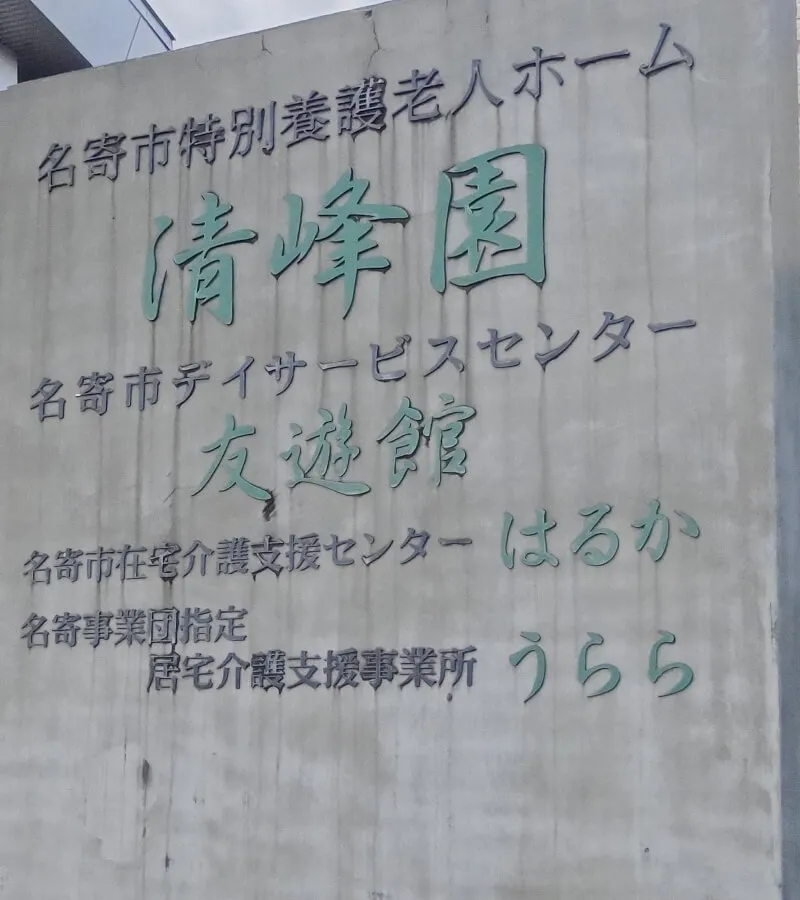 名寄市特別養護老人ホーム
清峰園
名寄市デイサービスセンター
友遊館
名寄市在宅介護支援センター はるか
名寄事業団指定
居宅介護支援事業所 うらら